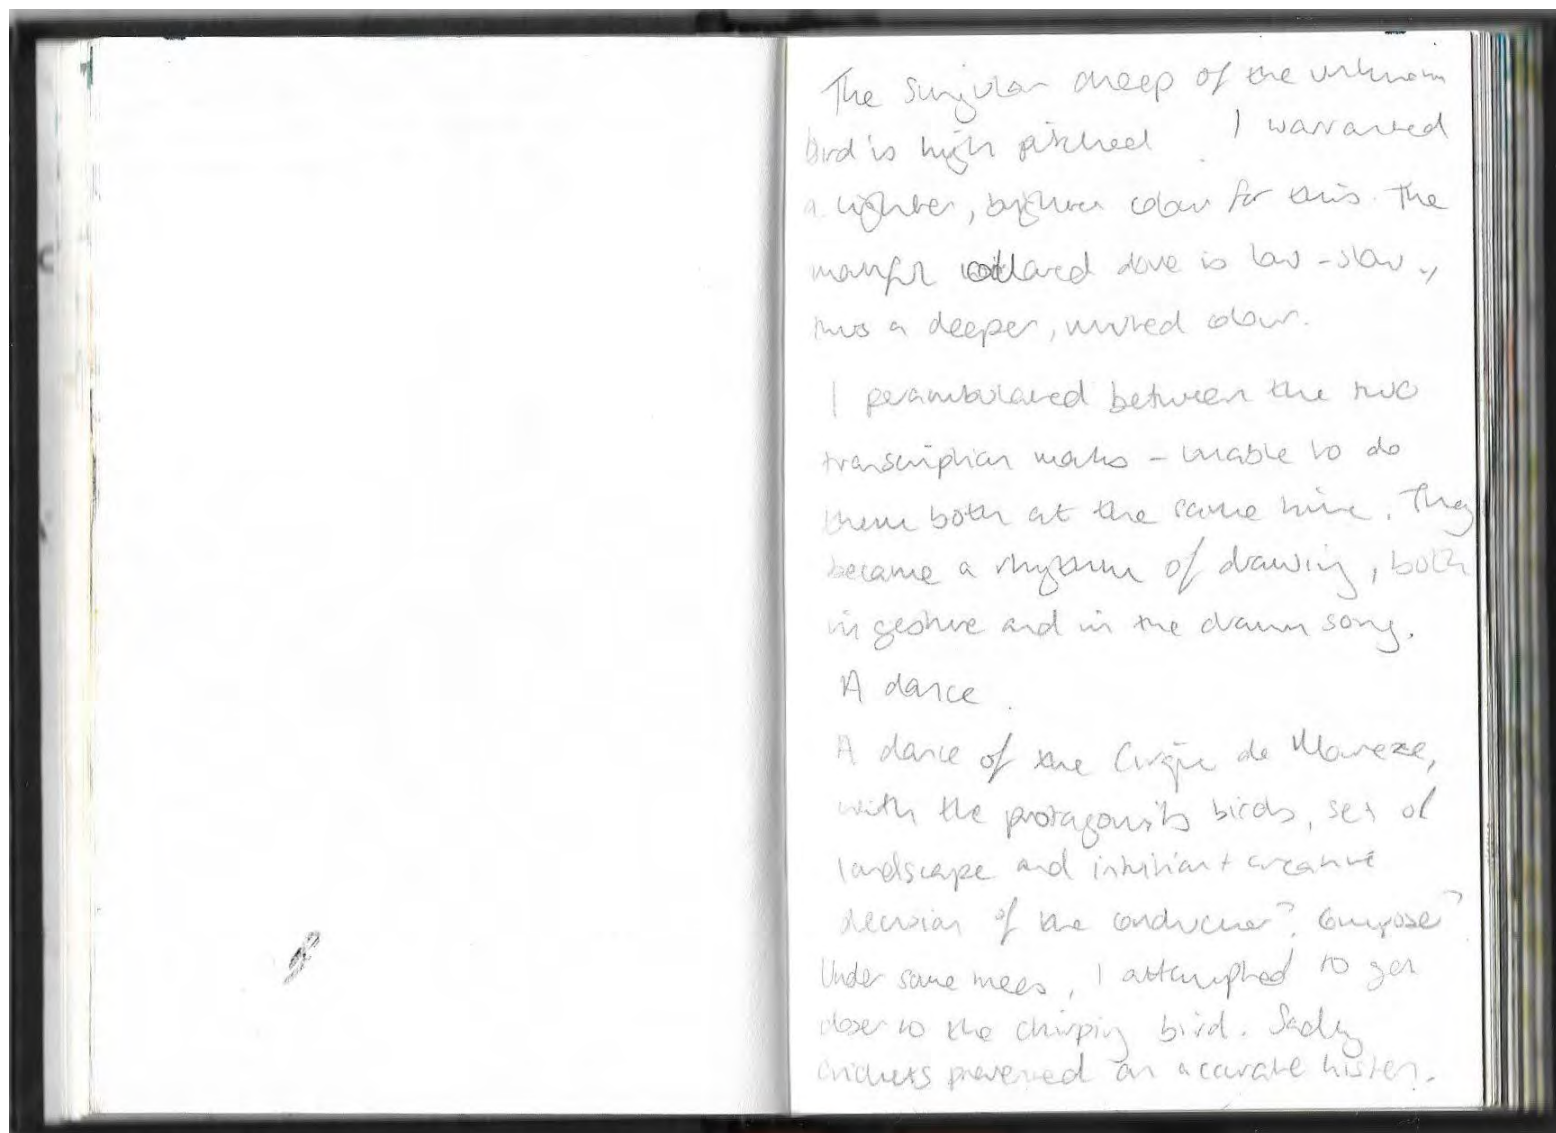 The singular cheep of the unknown
bird is high pitched. I warranted
a lighter, brighter colour for this. The
mournful collared dove is low-slow,
thus a deeper, muted colour.
I perambulated between the two
transcription marks - unable to do
them both at the same time. They
became a rhythm of drawing, both
in gesture and in the drawn song.
A dance.
A dance of the Cirque de
with the protagonists birds, set of
landscape and intuition + creative
decision of the conductor? Composer?
Under some trees, I attempted to get
closer to the chirping bird. Sadly
crickets prevented an accurate listen.